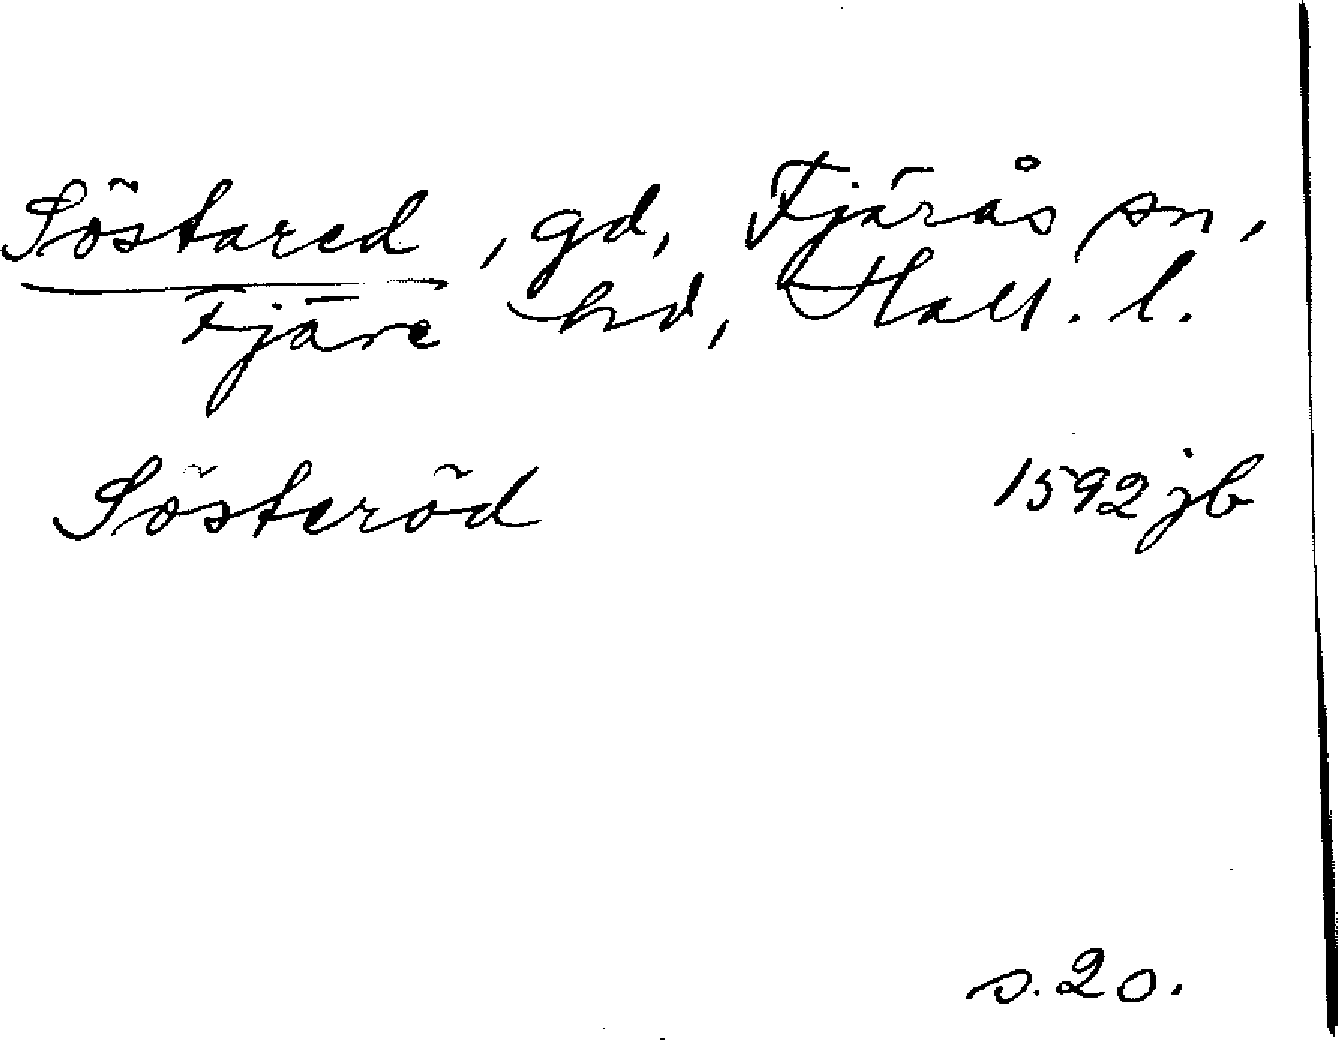 Söstared, gd, Fjärås sn,
Fjäre hd, Hall. l.
Sösteröd 1592 jb
s. 20.